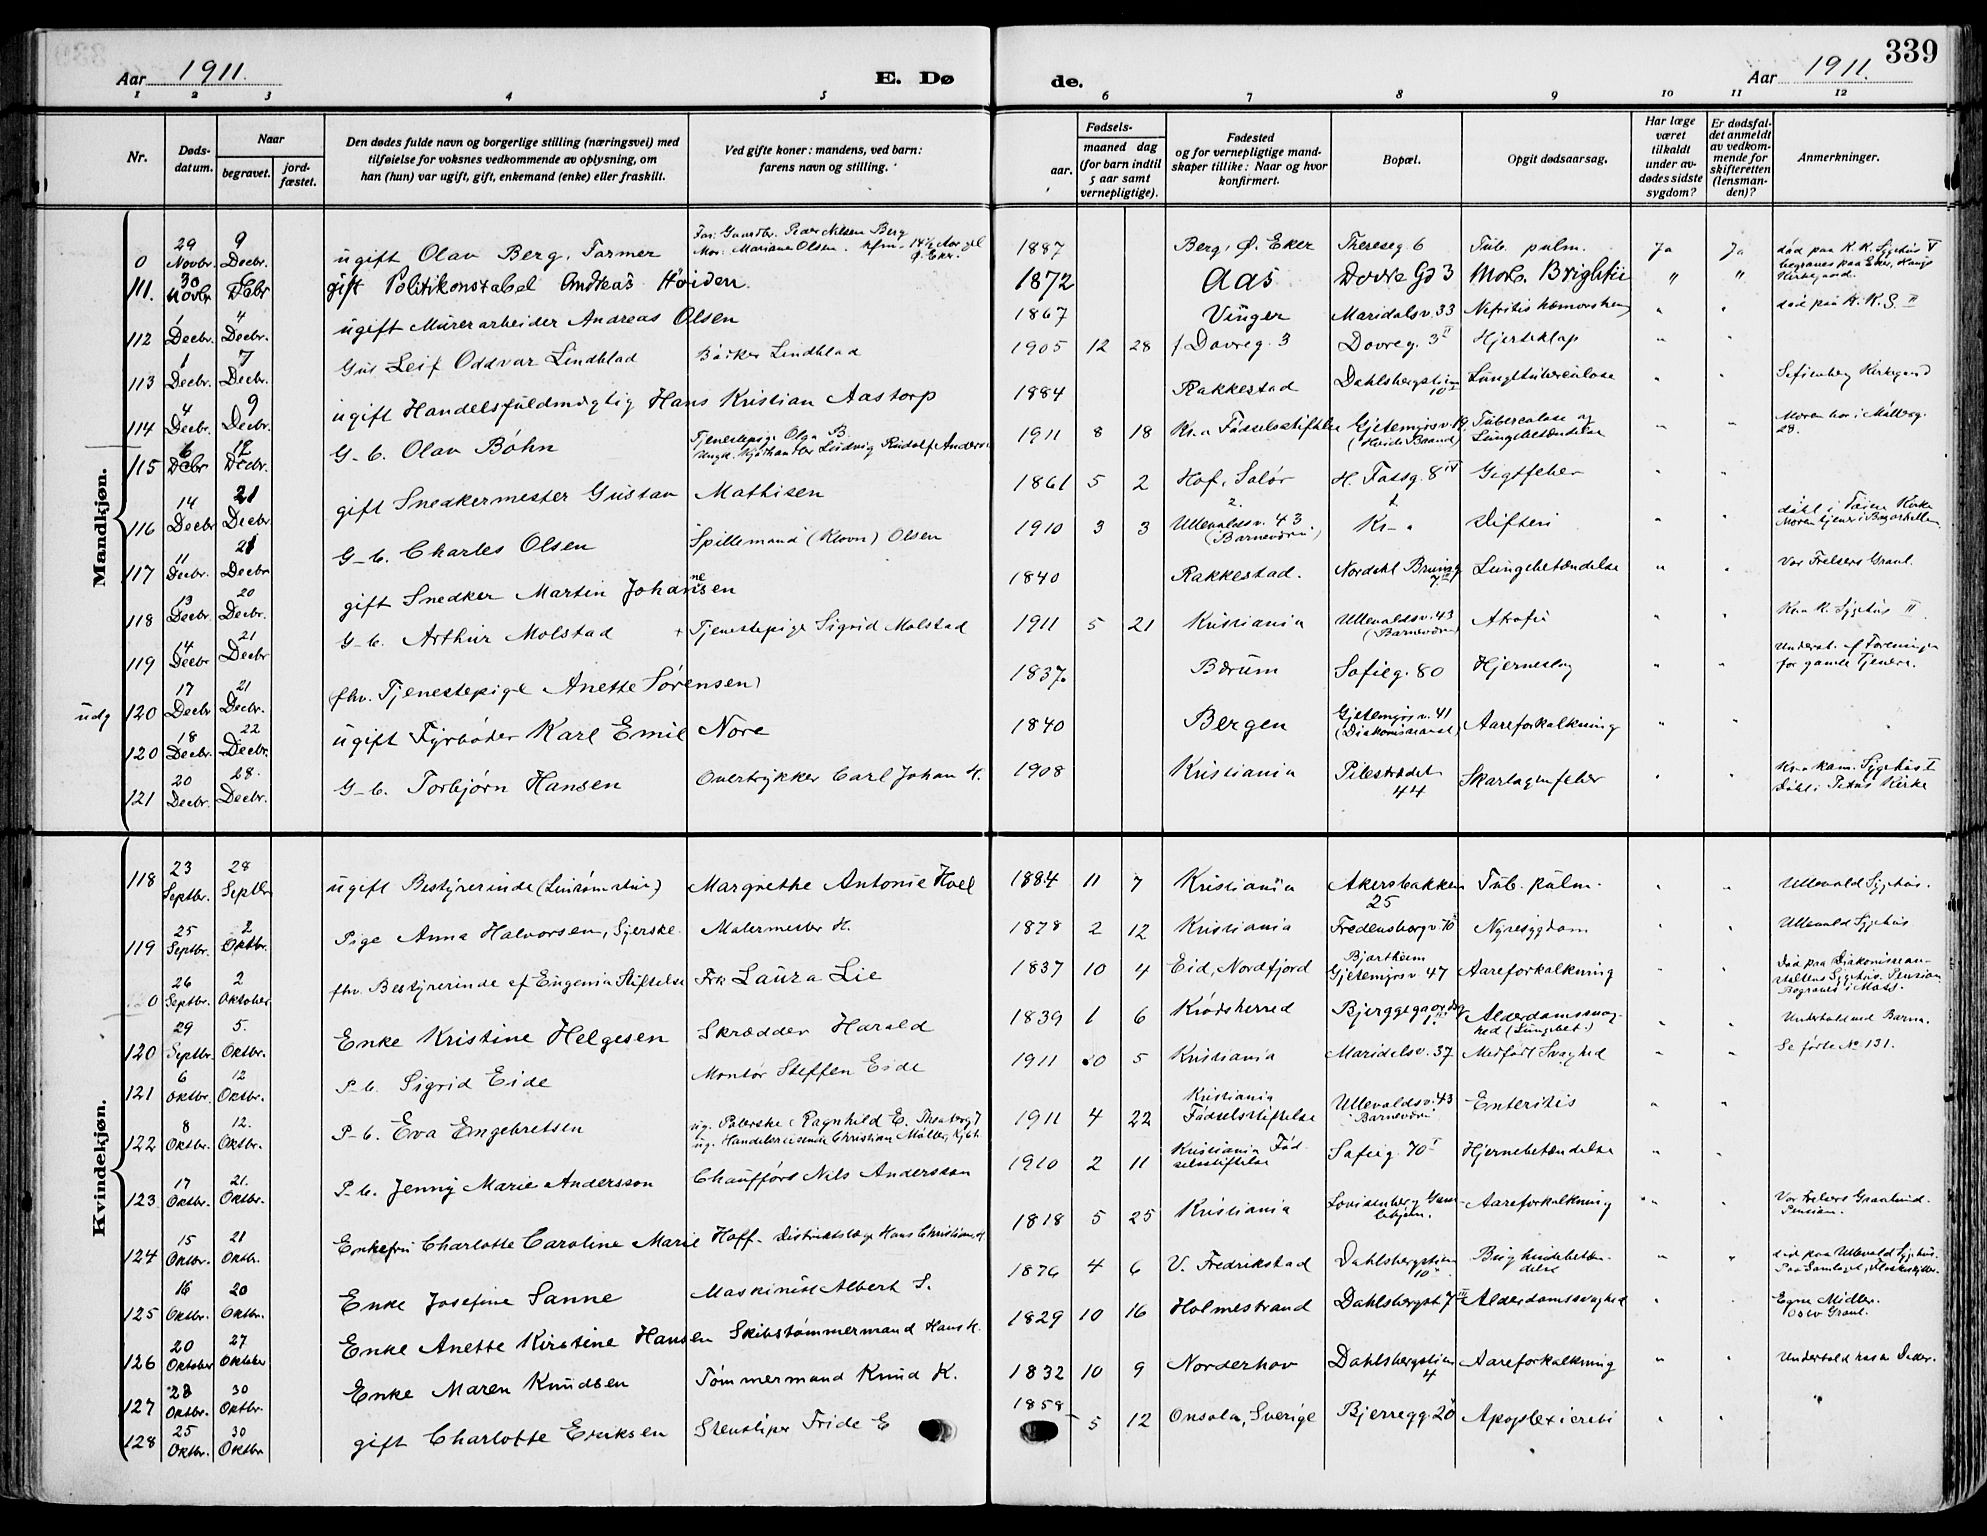 339
Aar 1911.
E. Dø
de.
Aar 1911.
1 2 3 4 5 6 7 8 9 10 11 12
Nr.
Dødsdatum.
Naar
begravet.
jordfæstet.
Den dødes fulde navn og borgerlige stilling (næringsvei) med
tilføielse for voksnes vedkommende av oplysning, om
han (hun) var ugift, gift, enkemand (enke) eller fraskilt.
Ved gifte koner: mandens, ved barn:
farens navn og stilling.
aar.
Fødsels-
maaned dag
(for barn indtil
5 aar samt
vernepligtige).
Fødested
og for vernepligtige mand-
skaper tillike: Naar og hvor
konfirmert.
Bopæl.
Opgit dødsaarsag.
Har læge
været
tilkaldt
under av-
dødes sidste
sygdom?
Er dødsfal-
det anmeldt
av vedkom-
mende for
skifteretten
(lensman-
den)?
Anmerkninger.
Mandkjøn.
0 29 Novbr. 9 Decbr. ugift Olav Berg, Farmer Far: Gaardbr. Peder Nilsen Berg Mor: Mariane Olsen 1887 Berg, Ø. Eker Thereseg 6 Tub. pulm. Ja Ja død paa K. K. Sygehus V begraves paa Eker, Haugs Kirkegaard.
111. 30 Novbr Decbr gift Politikonstabel Andreas Høiden. 1872 Aas Dovre Gd 3 Morb. Brightii " "
112 1 Decbr. 4 Decbr. ugift Murerarbeider Andreas Olsen 1867 Vinger Maridalsv. 33 Nefritis hæmorrhag " " død paa K. K. S. II
113 1 Decbr. 7 Decbr. Gut Leif Oddvar Lindblad Bødker Lindblad 1905 12 28 Dovreg. 3 Dovreg. 3 II Hjerteklap " "
114 4 Decbr. 9 Decbr. ugift Handelsfuldmægtig Hans Kristian Aastorp 1884 Rakkestad Dahlsbergstien 10 Lungetuberculose " " Sofienberg Kirkegaard
115 6 Decbr 12 Decbr. G-b. Olav Bøhn Tjenestepige Olga B. Ungk. Kjøthandler Ludvig Rudolf Anders 1911 8 18 Kr.a Fødselsstiftelse Gjetemyrsv. Tuberculose og Lungebetændelse " " Moren bor i Møllerg. 28.
116 14 Decbr 21 Decbr gift Snedkermester Gustav Mathisen 1861 5 2 Hof, Solør H. Fossg. 8 IV Gigtfeber " "
117 11 Decbr. 21 Decbr G-b. Charles Olsen Spillemand (Klovn) Olsen 1910 3 3 Ullevoldsv. 43 (Barnevern) Kr-a Difteri " " døbt i Tøien Kirke
118 13 Decbr. 20 Decbr. gift Snedker Martin Johannesen 1840 Rakkestad. Nordahl Brunsg Lungebetændelse " " Vor Frelsers Gravl.
119 14 Decbr 21 Decbr G-b. Arthur Molstad + Tjenestepige Sigrid Molstad 1911 5 21 Kristiania Ullevoldsv. 43 (Barnevern) Atrofi " " Kr.a K. Sygehus II
udg 120 17 Decbr 21 Decbr. (fhv. Tjenestepige Anette Sørensen) 1837. Bærum Sofieg. 80 Hjerneslag " " Underst. af Foreningen for gamle Tjenere.
120 18 Decbr. 22 Decbr. ugift Fyrbøder Karl Emil Nore 1840 Bergen Gjetemyrsv. 41 (Diakonissanst.) Aareforkalkning " "
121 20 Decbr. 28. Decbr. G-b. Torbjørn Hansen Overtrykker Carl Johan H. 1908 Kristiania Pilestrædet 44 Skarlagenfeber " " Kr.a kom. Sygehus I Døbt i Petrus Kirke
Kvindekjøn.
118 23 Septbr. 28 Septbr ugift Bestyrerinde Margrethe Antonie Hoel 1884 11 7 Kristiania Akersbakken 25 Tub. pulm. " " Ullevold Sygehus.
119 25 Septbr. 2 Oktbr. Pige Anna Halvorsen, Syerske. Malermester H. 1878 2 12 Kristiania Fredensborgv. 70 Nyresygdom " " Ullevold Sygehus
0 26 Septbr. 2 Oktober fhv. Bestyrerinde af Eugenia Stiftelse Frk Laura Lie 1837 10 4 Eid, Nordfjord Bjartheim Gjetemyrsv. 47 Aareforkalkning " " Død paa Diakonissean-staltens Sygehus. Pension Begraves i Moss.
120 29 Septbr 5. Oktbr. Enke Kristine Helgesen Skrædder Harald 1839 1 6 Krødsherred Bjerggegaardsg Alderdomssvag-hed (Lungebet.) " " Underhold ved Barna.
121 6 Oktbr. 12 Oktbr. P-b. Sigrid Eide Montør Steffen Eide 1911 0 5 Kristiania Maridalsv. 37 Medfødt Svaghed " " Se førte No 131.
122 8 Oktbr. 12. Oktbr. P-b. Eva Engebretsen ug. Polerske Ragnhild E. ug. Handelsreisende Christian Møller 1911 4 22 Kristiania Fødselsstiftelse Ullevoldsv. 43 Barnevern Enteritis " "
123 17 Oktbr. 21. Oktbr. P-b. Jenny Marie Andersson Chauffør Nils Andersson 1910 2 11 Kristiania Fød-selsstiftelse Sofieg. 70 I Hjernebetændelse " "
124 15 Oktbr. 21 Oktbr. Enkefru Charlotte Caroline Marie Hoff - Distriktslæge Hans Christian H 1818 5 25 Kristiania Lovisenberg Gam-lehjem. Aareforkalkning " " Vor Frelsers Gravlund. Pension.
125 16 Oktbr. 20 Oktbr. Enke Josefine Sanne Maskinist Albert S. 1876 4 6 V. Fredrikstad Dahlsbergstien 10 Bughindebetæn-delse " " død paa Ullevold Sygehus.
126 20 Oktober 27 Oktober Enke Anette Kirstine Hansen Skibstømmermand Hans H. 1829 10 16 Holmestrand Dahlsbergst 7 III Alderdomssvaghed " " Egne Midler. Oslo Gravl.
127 23 Oktbr. 30 Oktbr. Enke Maren Knudsen Tømmermand Knud K. 1832 10 9 Norderhov Dahlsbergstien 4 Aareforkalkning " " Underhold hos Datter.
128 25 Oktbr. 30 Oktbr gift Charlotte Eriksen Stensliper Fride E 1858 5 12 Onsala, Sverige Bjerregg. 20 Apoplexi cerebri " " "